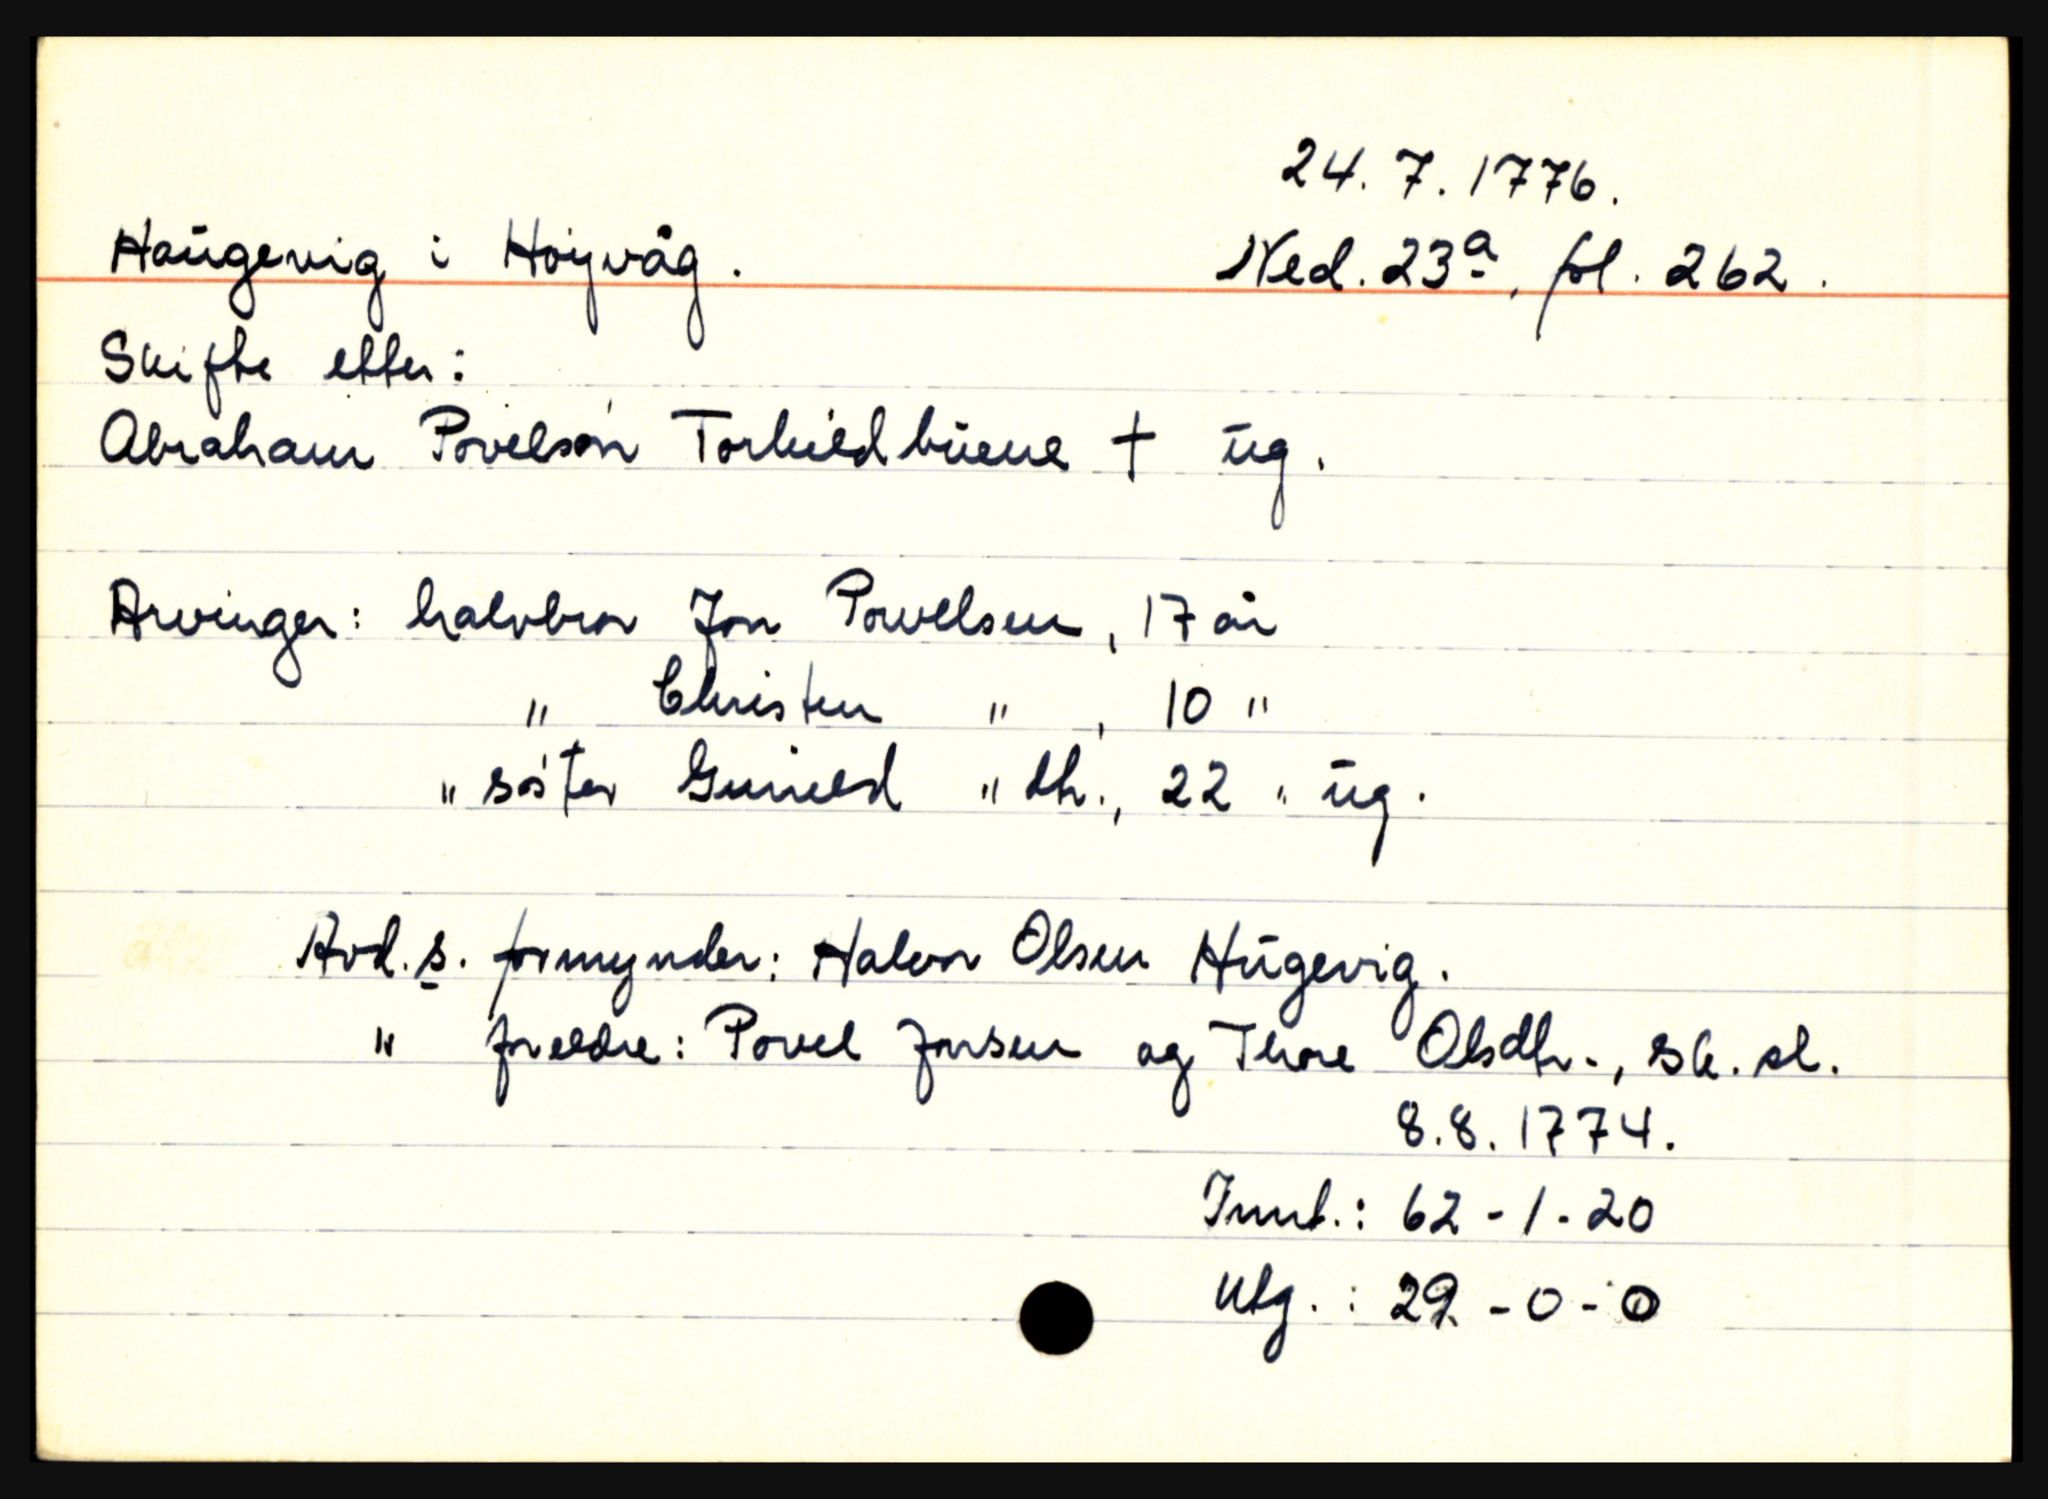 24.7.1776.
Haugevig i Høyvåg. Ned. 23a, fol. 262.
Skifte etter:
Abraham Povelsøn Torkieldbuene † ug.
Arvinger: halvbror Jon Powelsen, 17 år
" Christen " , 10 "
" søster Gunield " dtr., 22 " ug.
Avd.s. formynder: Halvor Olsen Hugevig.
" foreldre: Povel Jonsen og Thore Olsdtr., sk. sl.
8.8.1774.
Innt.: 62 - 1 - 20
Utg. : 29 - 0 - 0